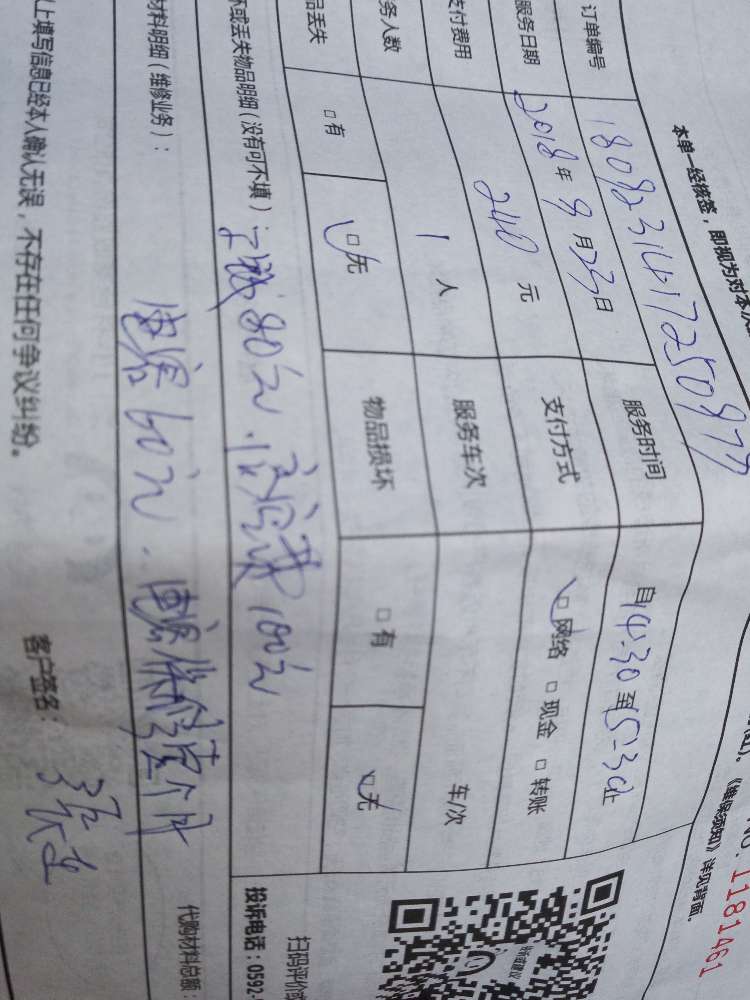 No.1181461
《维保须知》详见背面。
本单一经核签，即视为对本次
订单编号 180923141725097
服务时间 自14:30至15:30止
服务日期 2018年9月23日
支付方式 网络 现金 转账
支付费用 240元
服务车次 车次
务人数 1人
物品损坏 有 无
品丢失 有 无
坏或丢失物品明细(没有可不填)：
80元 100元
材料明细(维修业务)：
电容60元
代购材料总额：
上填写信息已经本人确认无误，不存在任何争议纠纷。
客户签名：
扫码评价
投诉电话：0592-